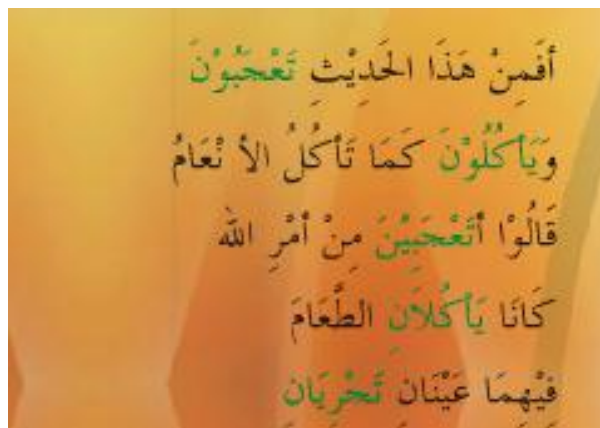 أفَمِنْ هَذَا الحَدِيْثِ تَعْجَبُوْنَ
وَيَأكُلُوْنَ كَمَا تَأكُلُ الأ نْعَامُ
قَالُوْا أتَعْجَبِيْنَ مِنْ أمْرِ الله
كَانَا يَأكُلاَنِ الطَّعَامَ
فِيْهِمَا عَيْنَانِ تَجْرِيَانِ